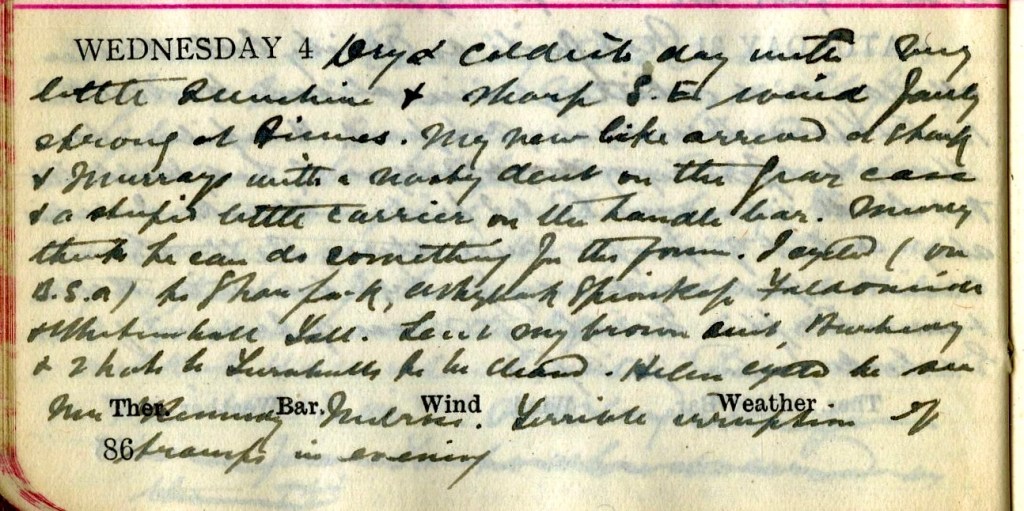 WEDNESDAY 4 Dry & coldish day with very
little sunshine & sharp S.E wind fairly
strong at times. My new bike arrived at
& Murrays with a nasty dent on the gear case
& a stupid little carrier on the handle bar. Murray
thinks he can do something for the former. I cycled (on
B.S.A) to
& Whitmuirhall Toll. Sent my brown suit
& 2 hats to Turnbulls to be cleaned. Helen cycled to see
Mrs Kennedy Melrose. Terrible irruption of
Ther. Bar. Wind Weather
86 tramps in evening